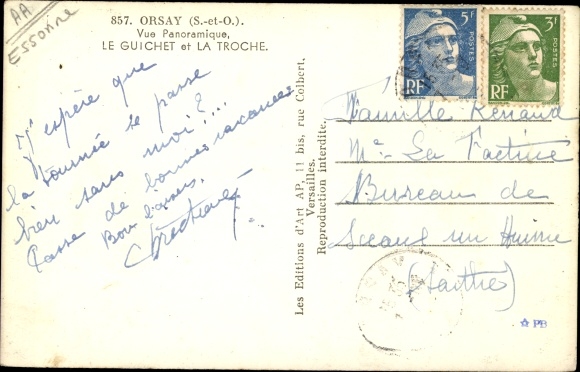 AA
Essonne
857. ORSAY (S.-et-O.).
Vue Panoramique,
LE GUICHET et LA TROCHE.
J'espère que
la tournée se passe
bien sans moi ?...
Passe de bonnes vacances
Bons baisers.
Les Editions d'Art AP, 11 bis, rue Colbert,
Versailles.
Reproduction interdite.
5F
POSTES
RF
3F
POSTES
RF
Famille Renaud
La Factrice
Bureau de
Sceaux sur Huisne
(Sarthe)
PB